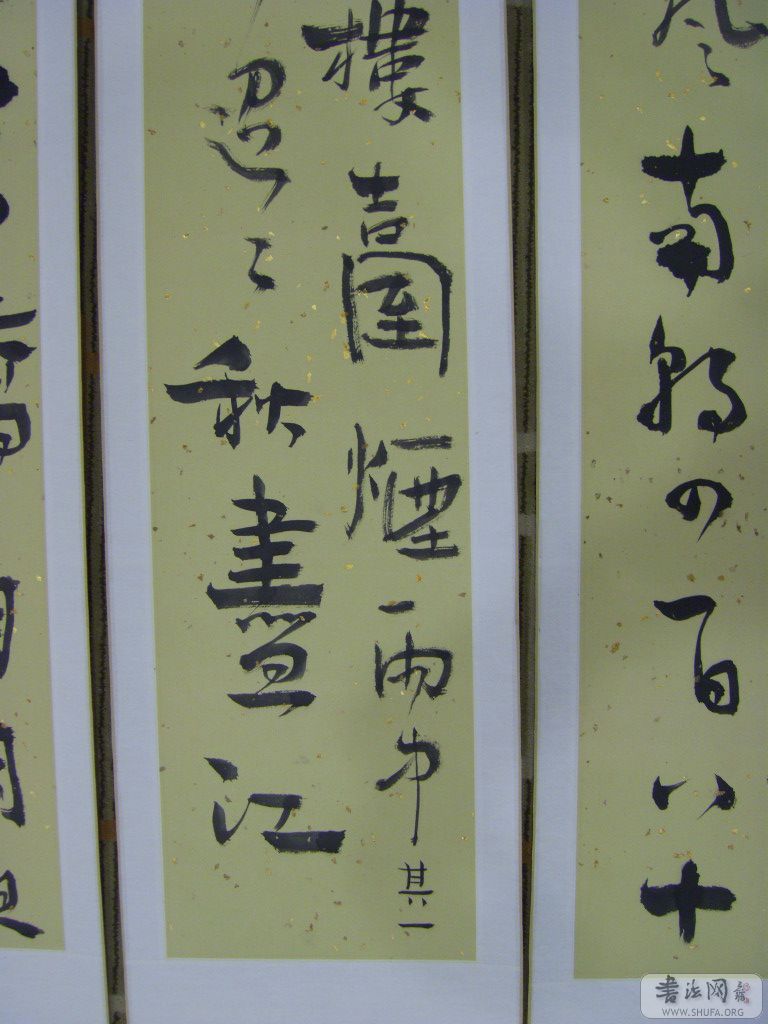 風南朝四百八十
樓臺煙雨中
其一
迢〻秋盡江
書法网
WWW.SHUFA.ORG